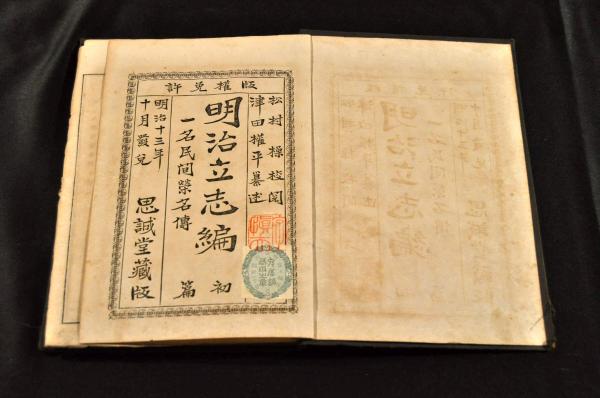 版權免許
松村操校閲
津田權平纂述
明治立志編
初篇
一名民間榮名傳
明治十三年
十月發兌
思誠堂藏版